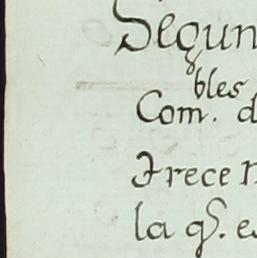 Segun
bles
Com. d
Trece n
la qs. es